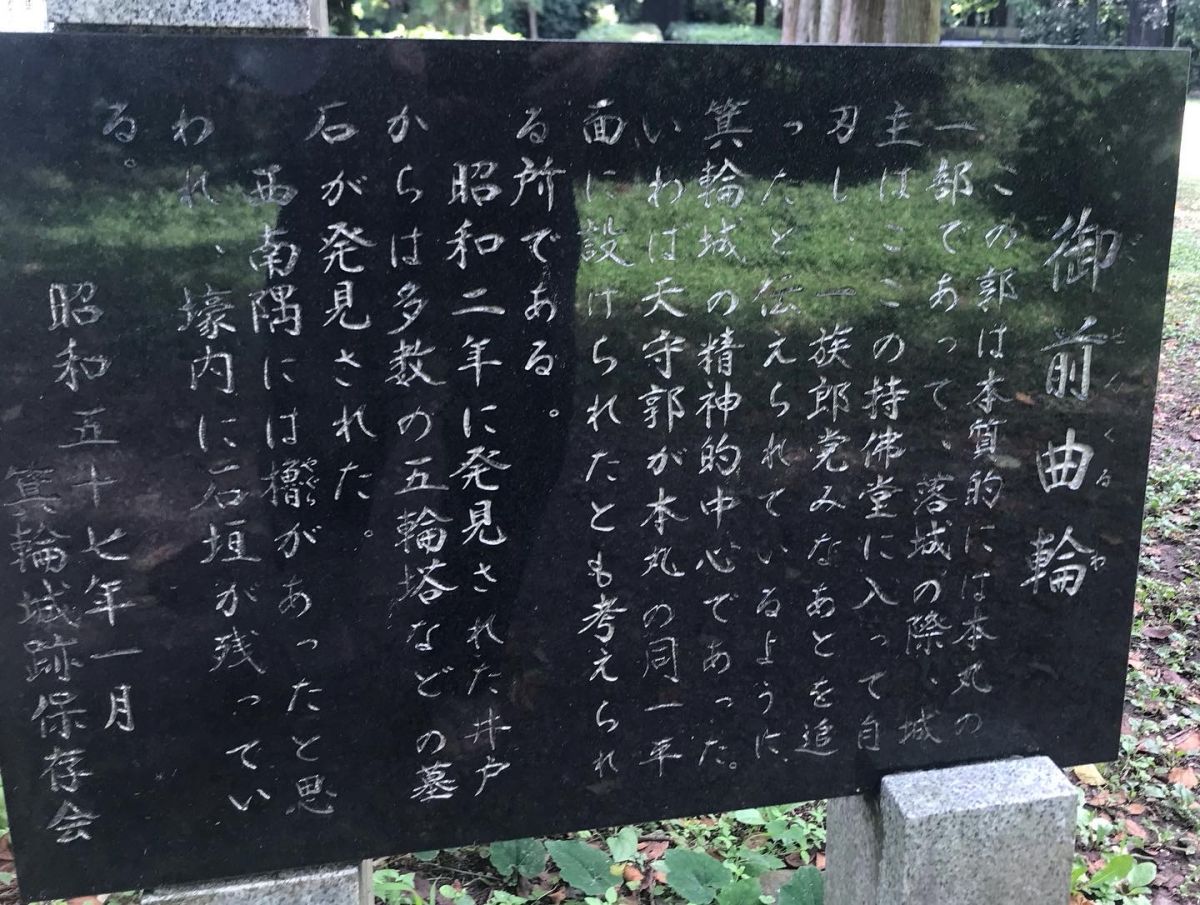 御前曲輪
ごぜんくるわ
この郭は本質的には本丸の
一部であって、落城の際、城
主はここの持佛堂に入って自
刃し、一族郎党みなあとを追
ったと伝えられているように、
箕輪城の精神的中心であった。
いわば天守郭が本丸の同一平
面に設けられたとも考えられ
る所である。
昭和二年に発見された井戸
からは多数の五輪塔などの墓
石が発見された。
西南隅には櫓があったと思
やぐら
われ、壕内に石垣が残ってい
る。
昭和五十七年一月
箕輪城跡保存会